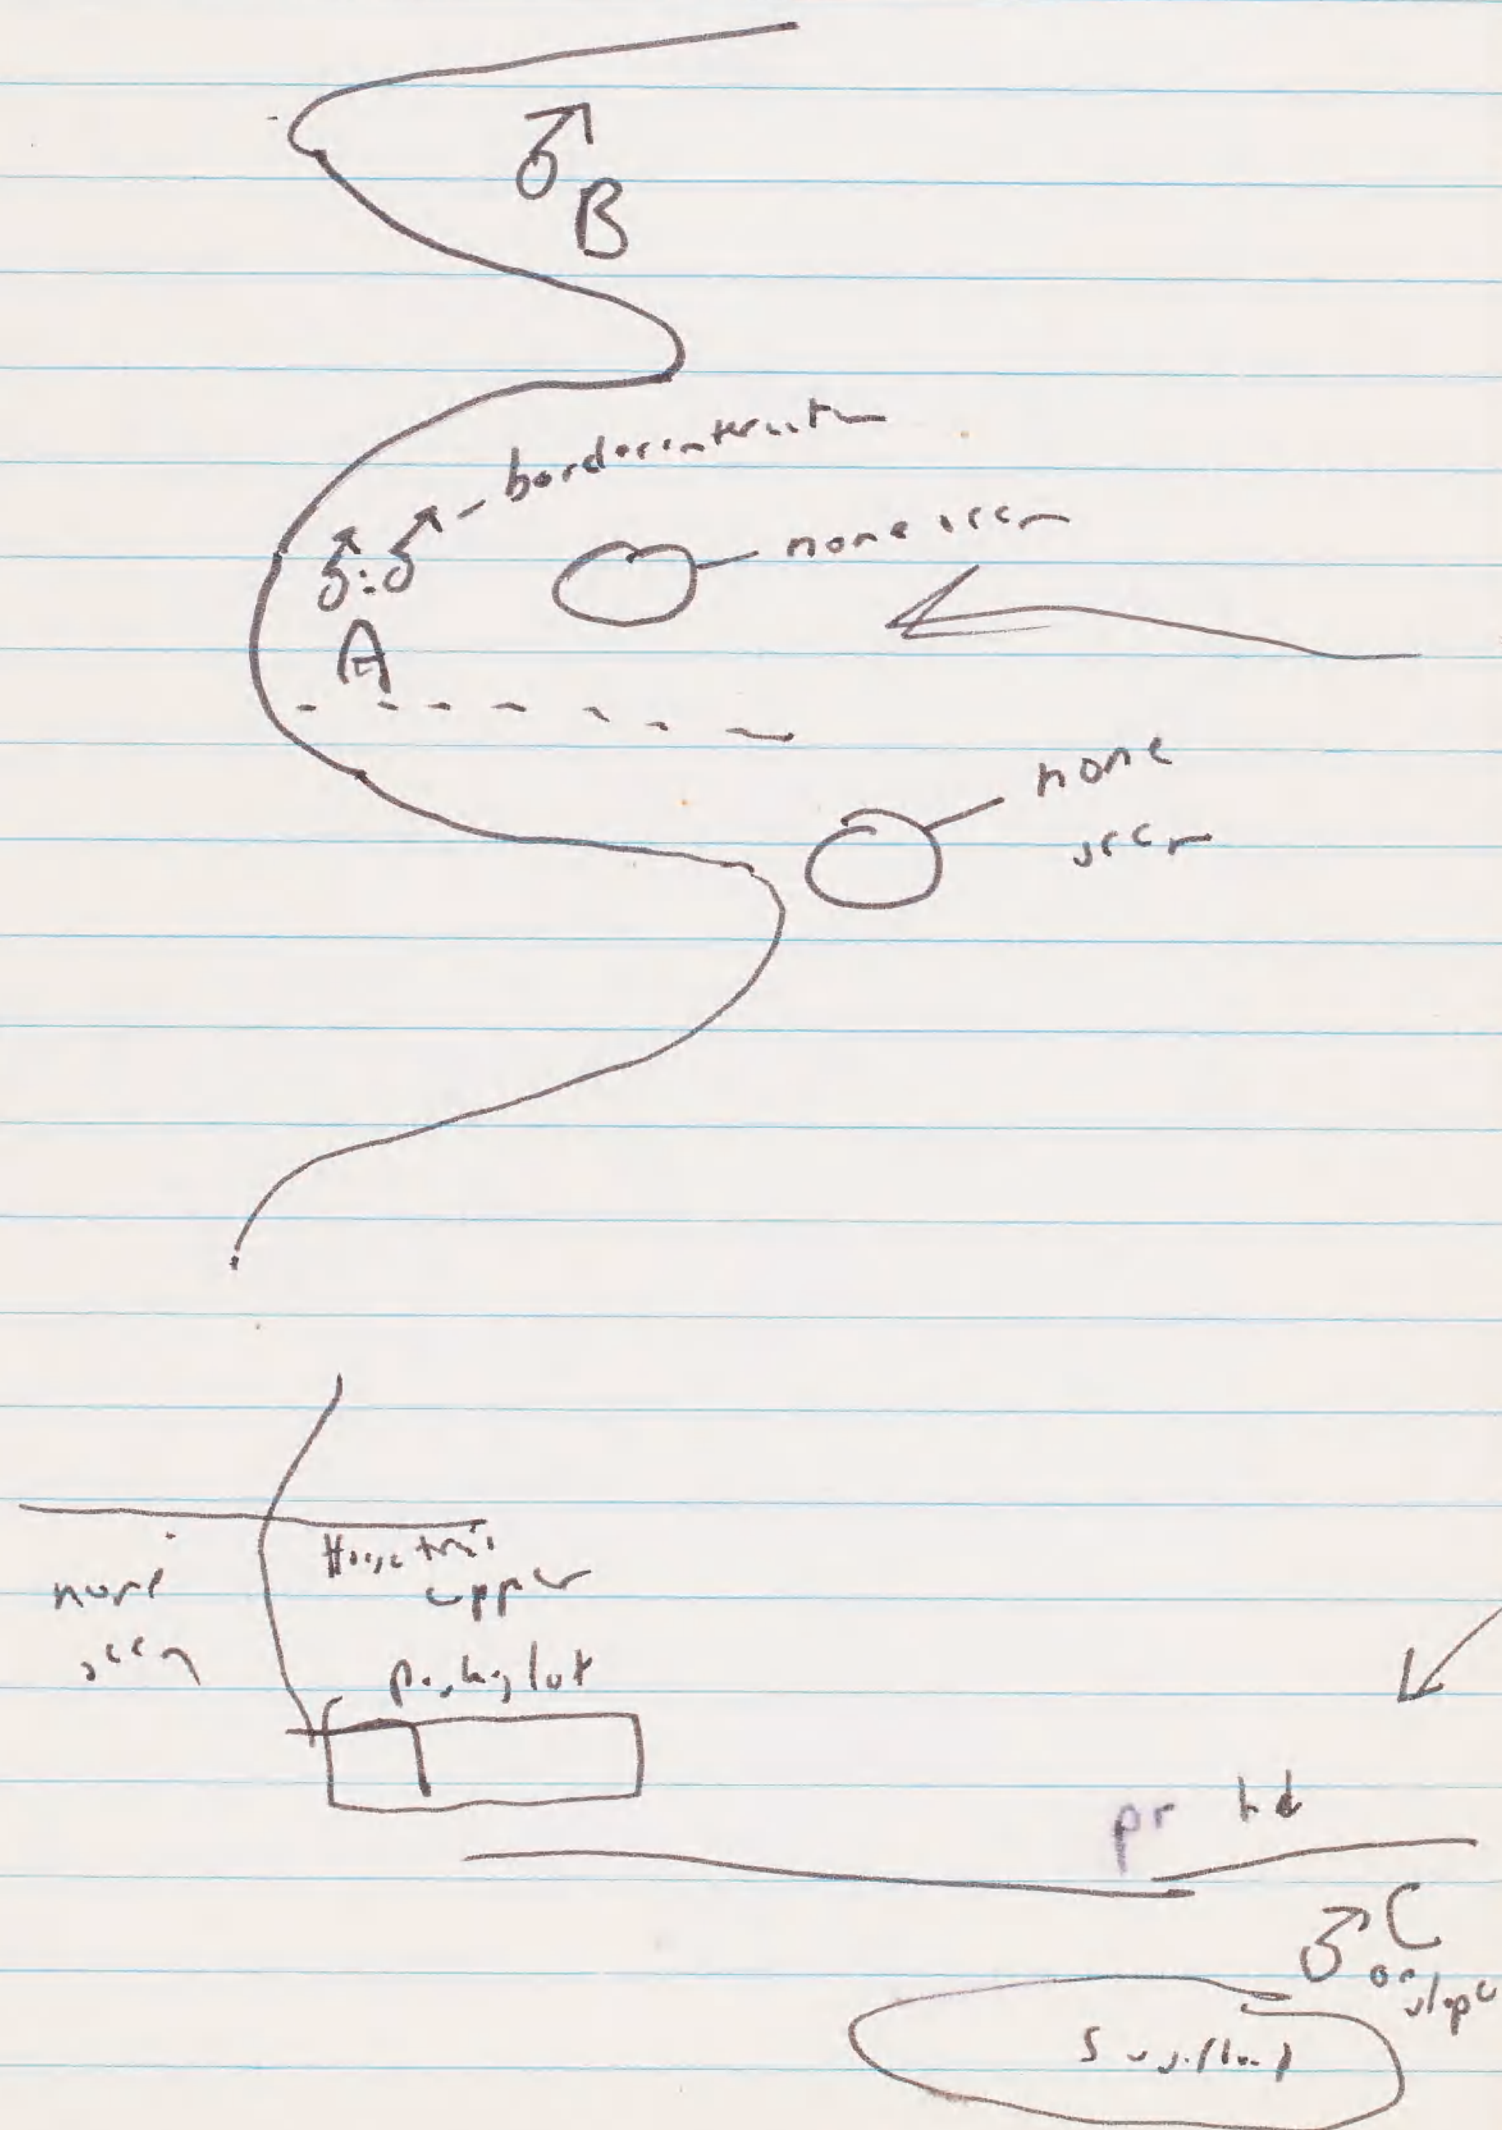 ♂ B
border interaction
♂:♂
none seen
A
none
seen
none
seen
upper
parking lot
♂ C
on
slope